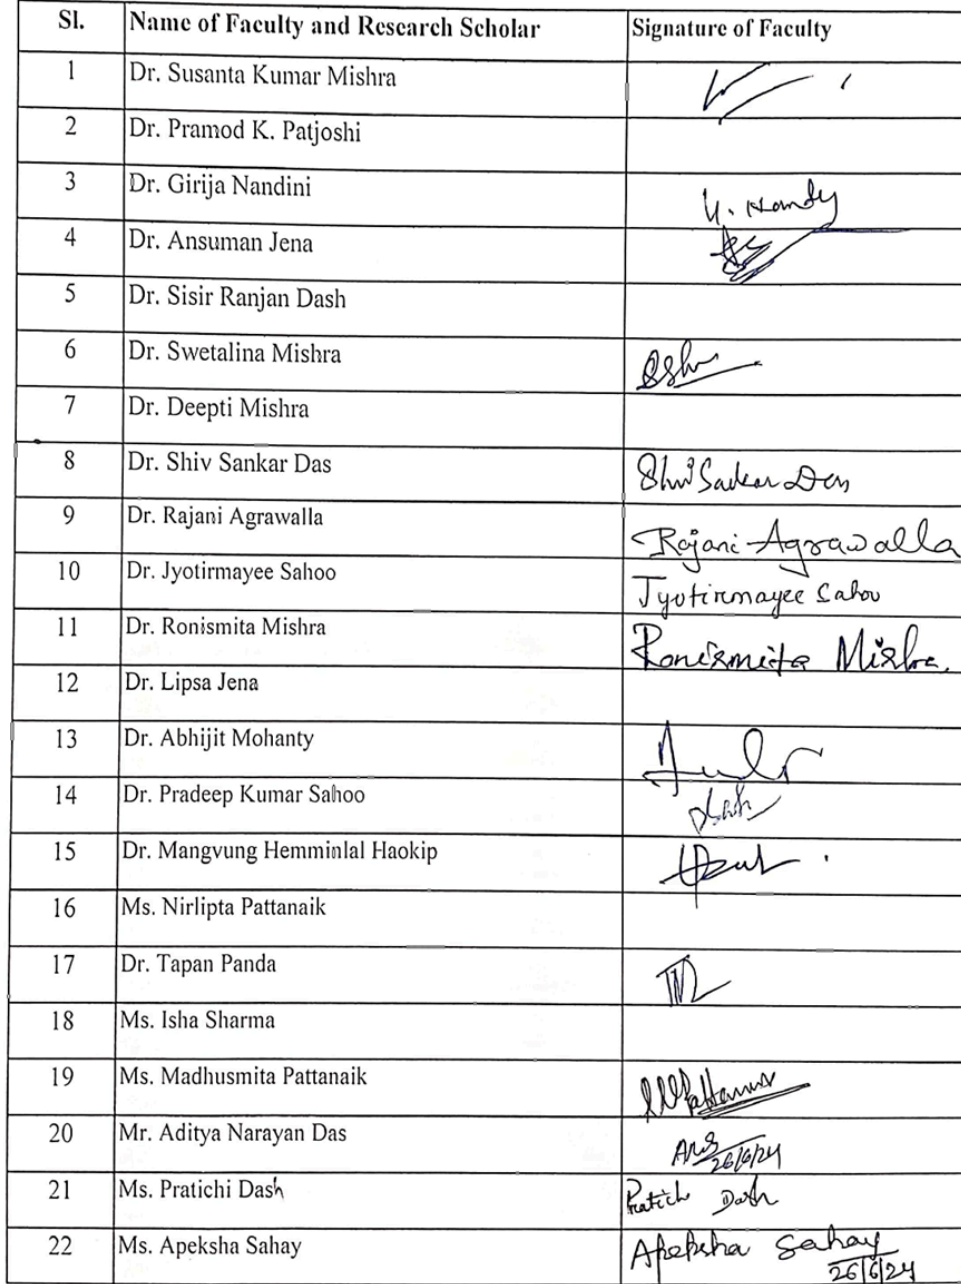 Sl. Name of Faculty and Research Scholar Signature of Faculty
1 Dr. Susanta Kumar Mishra
2 Dr. Pramod K. Patjoshi
3 Dr. Girija Nandini
4 Dr. Ansuman Jena
5 Dr. Sisir Ranjan Dash
6 Dr. Swetalina Mishra
7 Dr. Deepti Mishra
8 Dr. Shiv Sankar Das
9 Dr. Rajani Agrawalla Rajani Agrawalla
10 Dr. Jyotirmayee Sahoo Jyotirmayee Sahoo
11 Dr. Ronismita Mishra Ronismita Mishra.
12 Dr. Lipsa Jena
13 Dr. Abhijit Mohanty
14 Dr. Pradeep Kumar Sahoo
15 Dr. Mangvung Hemminlal Haokip
16 Ms. Nirlipta Pattanaik
17 Dr. Tapan Panda
18 Ms. Isha Sharma
19 Ms. Madhusmita Pattanaik
20 Mr. Aditya Narayan Das 26/6/24
21 Ms. Pratichi Dash Dash
22 Ms. Apeksha Sahay Apeksha Sahay
26/6/24